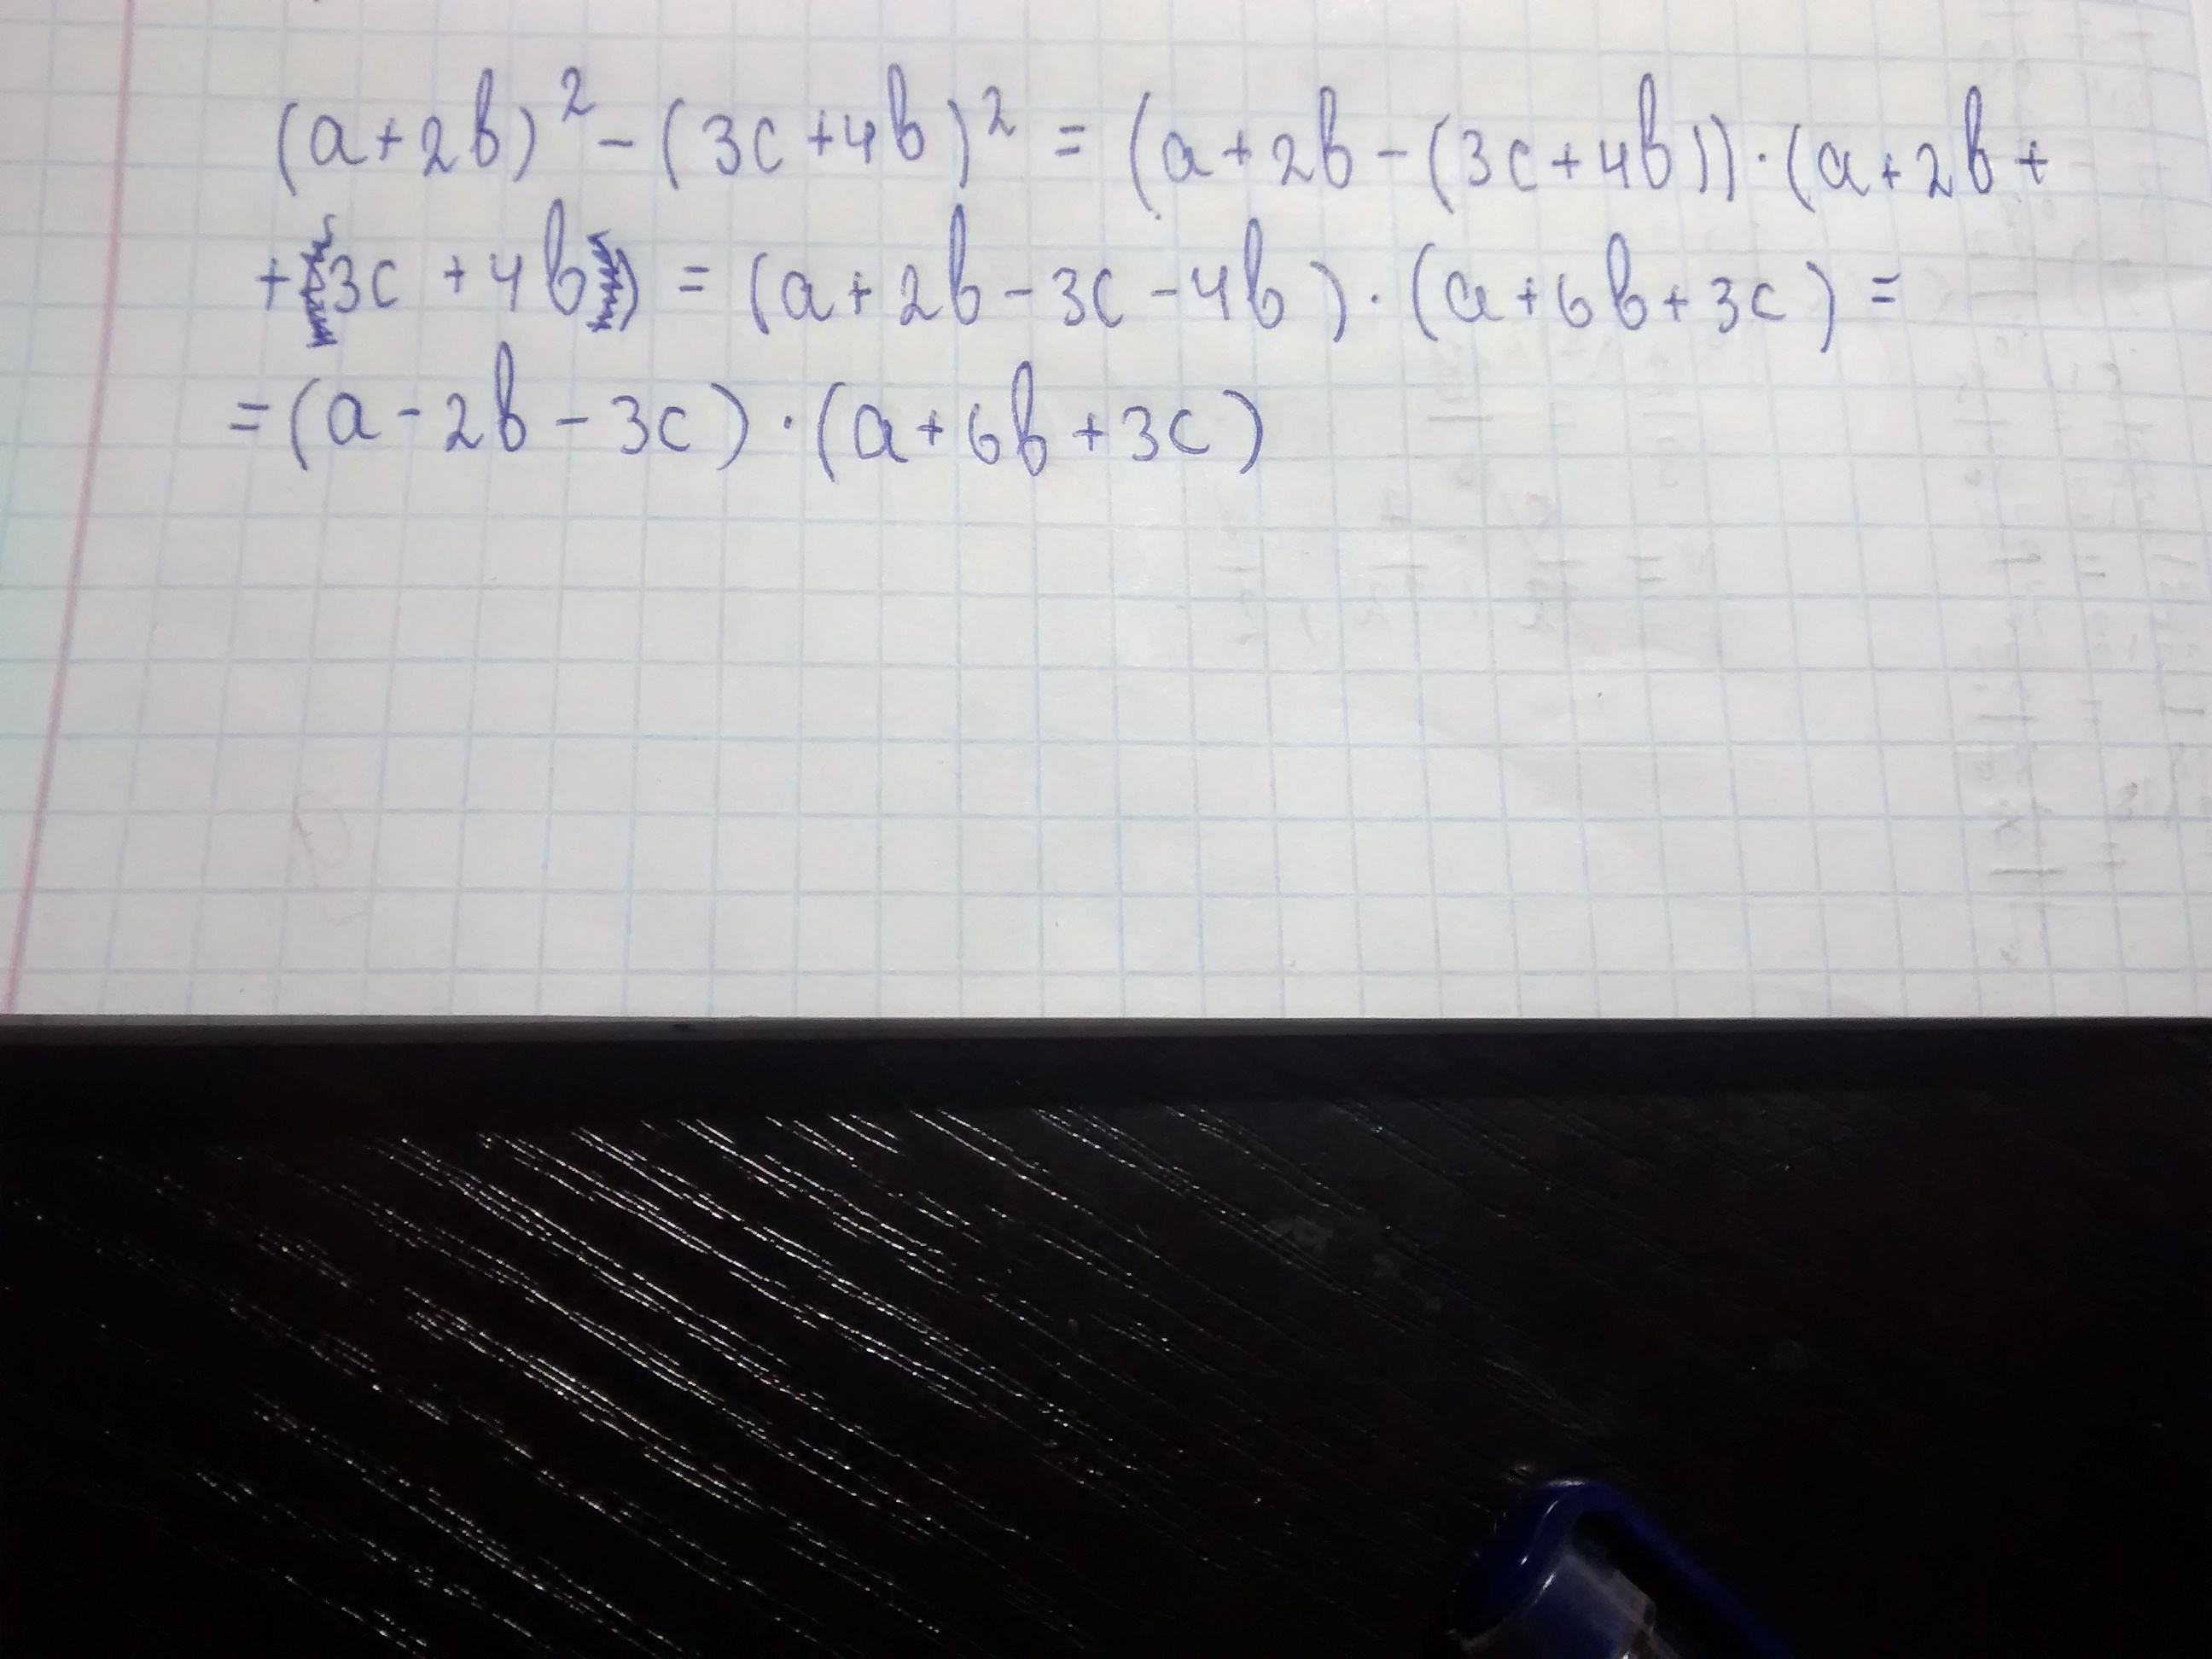 (a+2b)² - (3c+4b)² = (a+2b-(3c+4b))·(a+2b+
+3c+4b) = (a+2b-3c-4b)·(a+6b+3c) =
= (a-2b-3c)·(a+6b+3c)